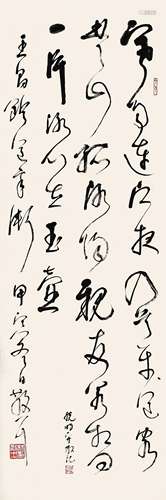 寒雨連江夜入吳送客
楚山孤洛陽親友如相問
一片冰心在玉壺
王昌齡送辛漸 甲寅冬日